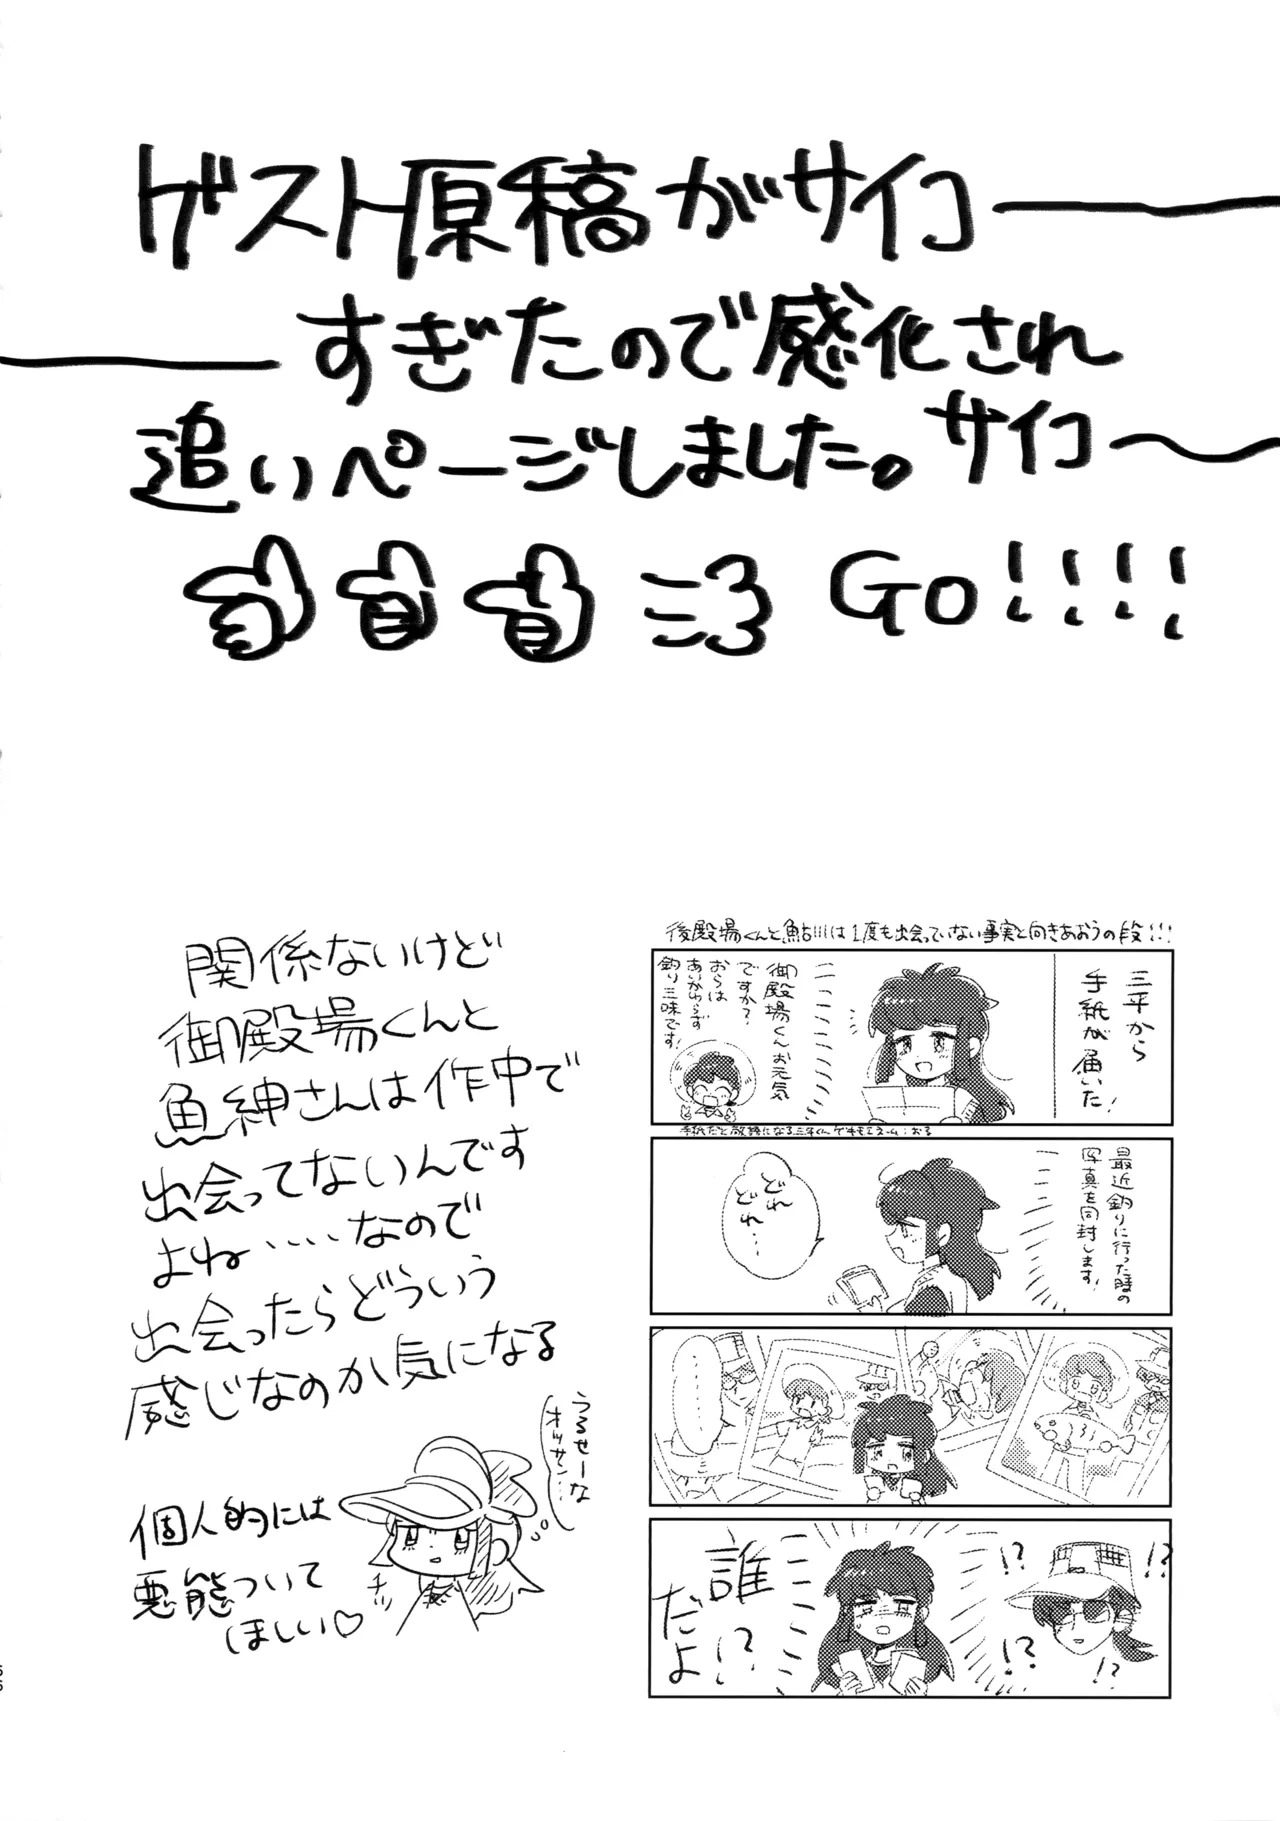 ゲスト原稿がサイコー
すぎたので感化され
追いページしました。サイコ〜
GO!!!!
後殿場くんと鮎!!!は1度も出会っていない事実と向きあおうの段!!!
三平から
手紙が届いた!
御殿場くんお元気
ですか?
おらは
あいかわらず
釣り三昧です!
手紙だと敬語になる三平くんでキモエスーム:おる
最近釣りに行った時の
写真を同封します!
どれ
どれ…
……
誰
だよ!?
!?
!?
!?
!?
関係ないけど
御殿場くんと
魚紳さんは作中で
出会ってないんです
よね‥‥なので
出会ったらどういう
感じなのか気になる
うるせーな
オッサン…
チッ
個人的には
悪態ついて
ほしい♡